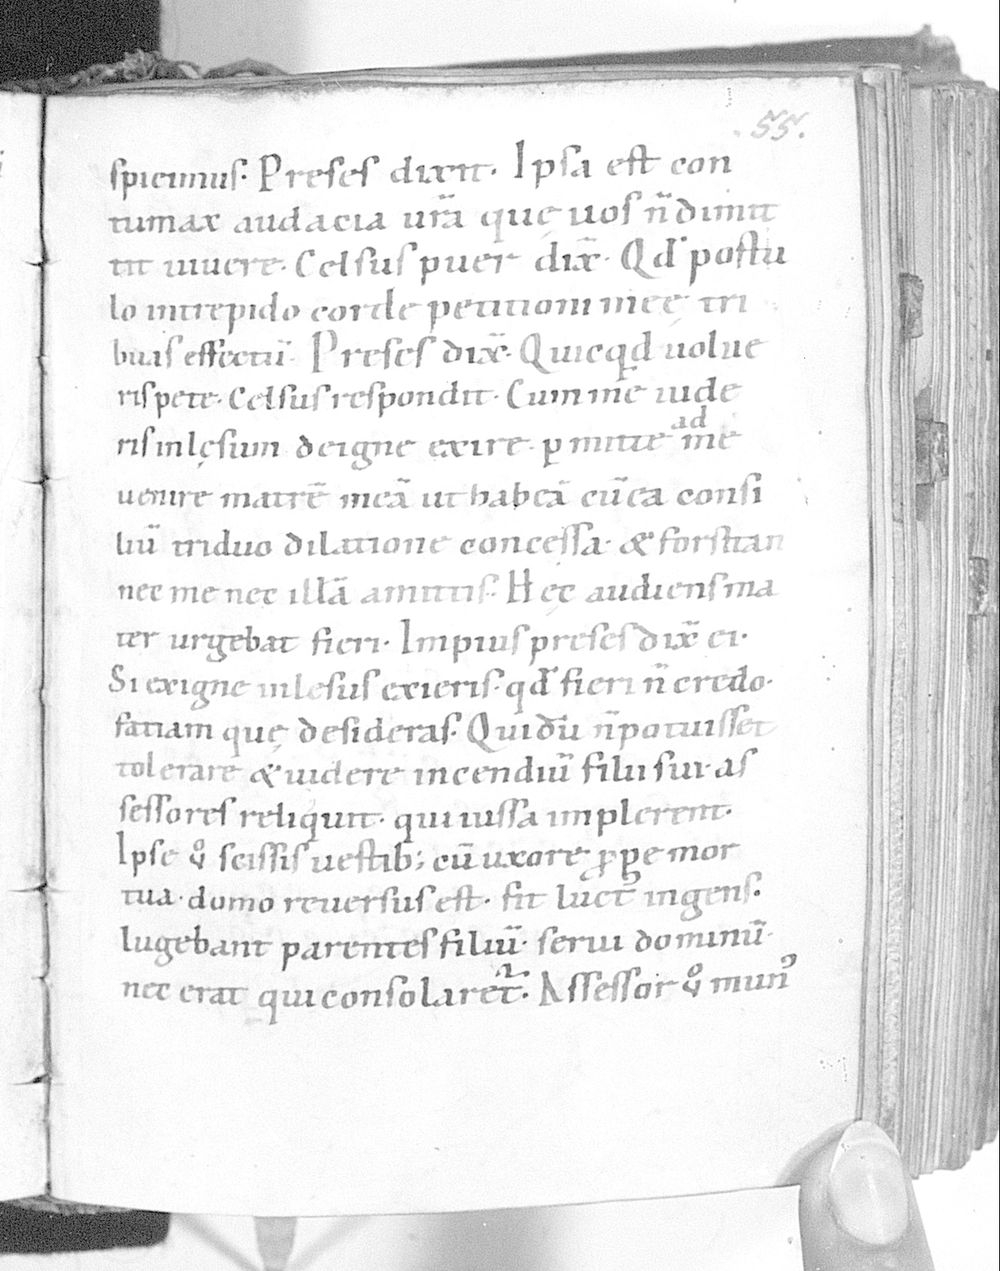 55.
spicimus. Preses dixit. Ipsa est con
tumax audacia ur̄a quę uos n̄ dimit
tit uiuere. Celsus puer dix̄. Qd postu
lo intrepido corde petitioni meę tri
buas effectū. Preses dix̄. Quicqd uolue
ris pete. Celsus respondit. Cum me uide
ris inlęsum de igne exire. ꝑmitte ad me
uenire matrē meā ut habeā cū ea consi
liū triduo dilatione concessa. & forsitan
nec me nec illā amittis. Hęc audiens ma
ter urgebat fieri. Impius preses dix̄ ei.
Si ex igne inlesus exieris. qđ fieri n̄ credo.
fatiam quę desideras. Qui dū n̄ potuisset
tolerare & uidere incendiū filii sui. as
sessores reliquit. qui iussa implerent.
Ipse ů scissis uestib; cū uxore ꝓpe mor
tua. domo reuersus est. fit luct̄ ingens.
lugebant parentes filiū. serui dominū.
nec erat qui consolaret᷑. Assessor ů munꝰ